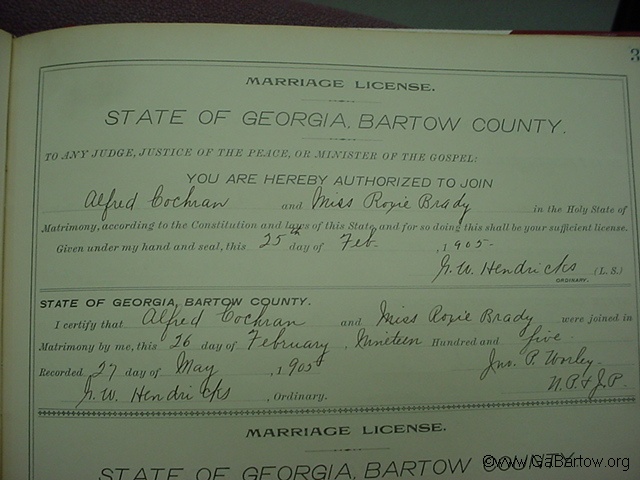 3
MARRIAGE LICENSE.
STATE OF GEORGIA, BARTOW COUNTY.
TO ANY JUDGE, JUSTICE OF THE PEACE, OR MINISTER OF THE GOSPEL:
YOU ARE HEREBY AUTHORIZED TO JOIN
Alfred Cochran and Miss Roxie Brady in the Holy State of
Matrimony, according to the Constitution and laws of this State, and for so doing this shall be your sufficient license.
Given under my hand and seal, this 25th day of Feb. , 1905
G. W. Hendricks (L. S.)
ORDINARY.
STATE OF GEORGIA, BARTOW COUNTY.
I certify that Alfred Cochran and Miss Roxie Brady were joined in
Matrimony by me, this 26 day of February , Nineteen Hundred and five.
Recorded 27 day of May , 1905 Jno. P. Worley
G. W. Hendricks , Ordinary. N. P. & J. P.
MARRIAGE LICENSE.
STATE OF GEORGIA, BARTOW COUNTY.
©www.GaBartow.org